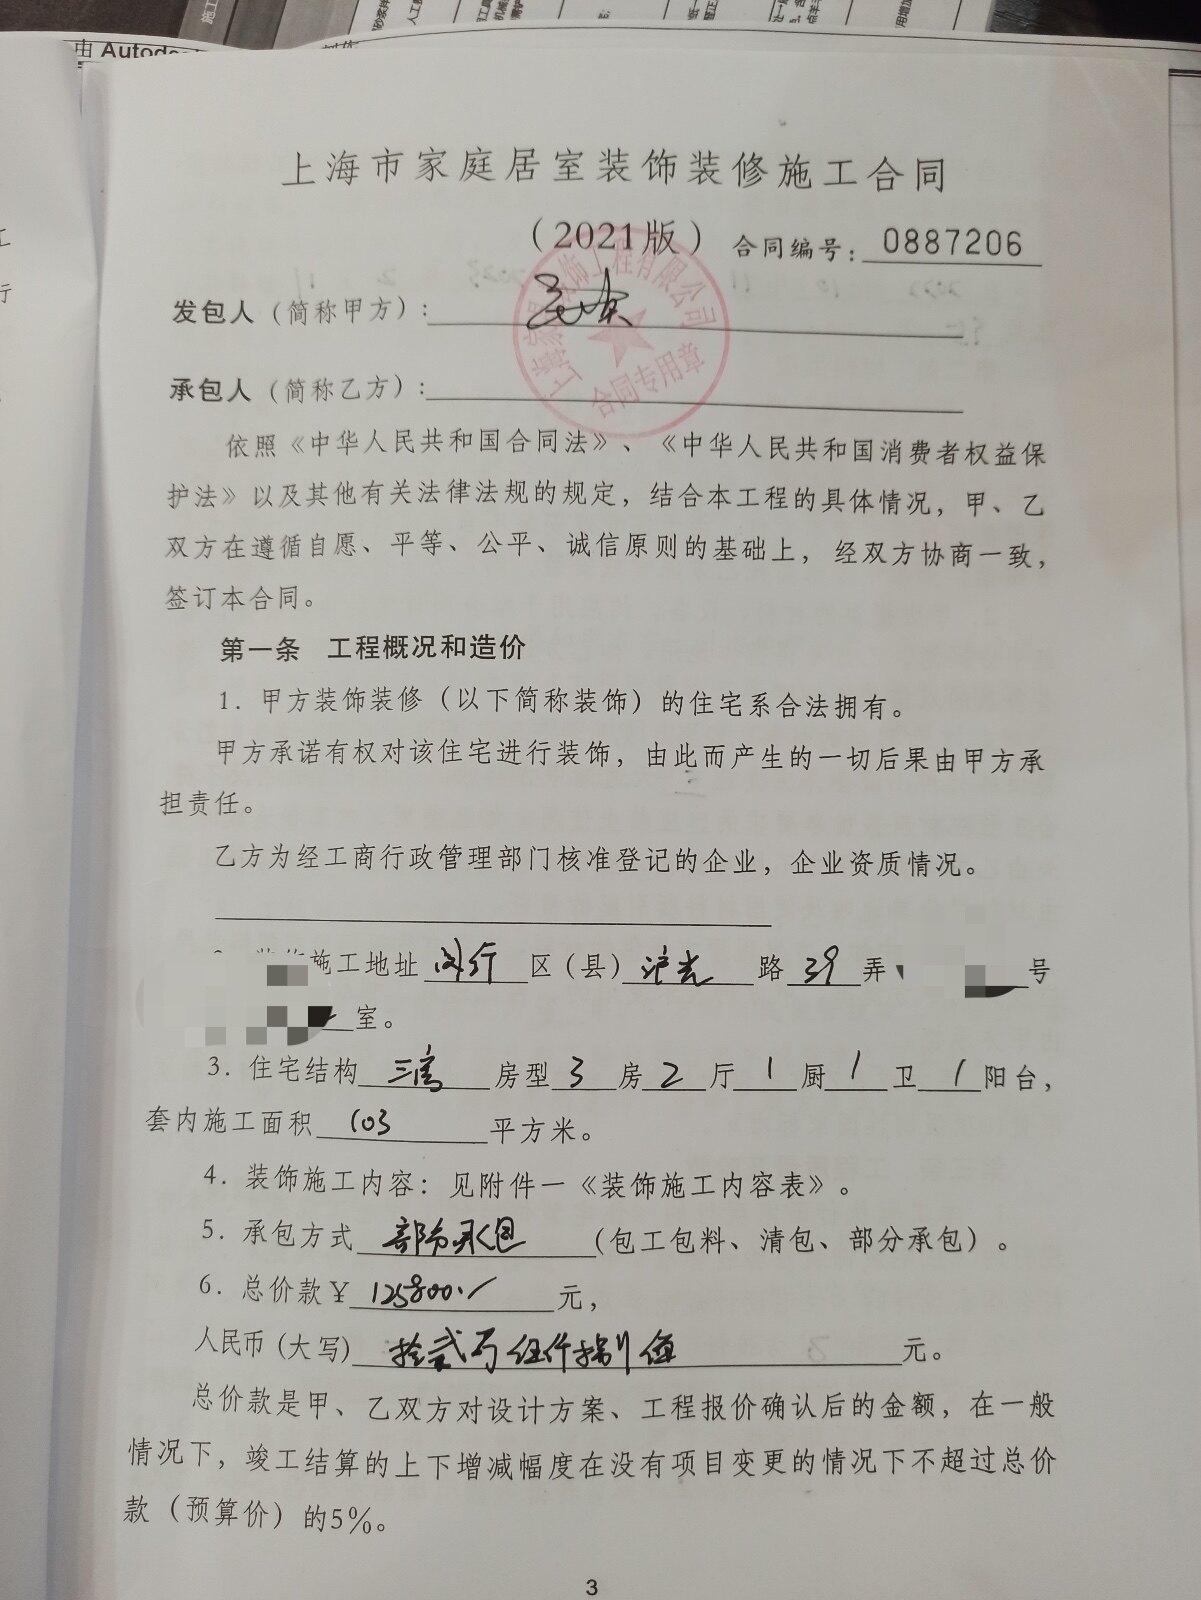 由 Autode
上海市家庭居室装饰装修施工合同
（2021版）
合同编号：0887206
发包人（简称甲方）：
承包人（简称乙方）：
装饰工程有限公司
合同专用章
依照《中华人民共和国合同法》、《中华人民共和国消费者权益保
护法》以及其他有关法律法规的规定，结合本工程的具体情况，甲、乙
双方在遵循自愿、平等、公平、诚信原则的基础上，经双方协商一致，
签订本合同。
第一条 工程概况和造价
1. 甲方装饰装修（以下简称装饰）的住宅系合法拥有。
甲方承诺有权对该住宅进行装饰，由此而产生的一切后果由甲方承
担责任。
乙方为经工商行政管理部门核准登记的企业，企业资质情况。
施工地址 闵行 区（县） 沪光 路 39 弄 号
室。
3. 住宅结构 三房 房型 3 房 2 厅 1 厨 1 卫 1 阳台，
套内施工面积 103 平方米。
4. 装饰施工内容：见附件一《装饰施工内容表》。
5. 承包方式 部分承包 （包工包料、清包、部分承包）。
6. 总价款￥ 125800. 元，
人民币（大写） 拾贰万伍仟捌佰 元。
总价款是甲、乙双方对设计方案、工程报价确认后的金额，在一般
情况下，竣工结算的上下增减幅度在没有项目变更的情况下不超过总价
款（预算价）的5%。
3